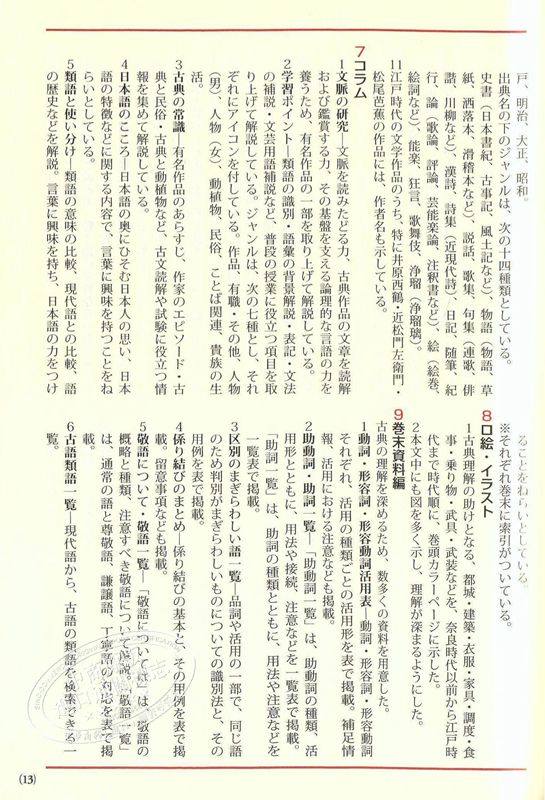 戸、明治、大正、昭和。
出典名の下のジャンルは、次の十四種類としている。
史書(日本書紀、古事記、風土記など)、物語(物語、草
紙、洒落本、滑稽本など)、説話、歌集、句集(連歌、俳
諧、川柳など)、漢詩、詩集(近現代詩)、日記、随筆、紀
行、論(歌論、評論、芸能楽論、注釈書など)、絵(絵巻、
絵詞など)、能楽、狂言、歌舞伎、浄瑠(浄瑠璃)。
11江戸時代の文学作品のうち、特に井原西鶴・近松門左衛門・
松尾芭蕉の作品には、作者名も示している。
7コラム
1文脈の研究―文脈を読みたどる力、古典作品の文章を読解
および鑑賞する力、その基盤を支える論理的な言語の力を
養うため、有名作品の一部を取り上げて解説している。
2学習ポイント―類語の識別・語彙の背景解説・表記・文法
の補説・文芸用語補説など、普段の授業に役立つ項目を取
り上げて解説している。ジャンルは、次の七種とし、それ
ぞれにアイコンを付している。作品、有職・その他、人物
(男)、人物(女)、動植物、民俗、ことば関連、貴族の生
活。
3古典の常識―有名作品のあらすじ、作家のエピソード・古
典と民俗・古典と動植物など、古文読解や試験に役立つ情
報を集めて解説している。
4日本語のこころ―日本語の奥にひそむ日本人の思い、日本
語の特徴などに関する内容で、言葉に興味を持つことをね
らいとしている。
5類語と使い分け―類語の意味の比較、現代語との比較、語
の歴史などを解説。言葉に興味を持ち、日本語の力をつけ
ることをねらいとしている。
※それぞれ巻末に索引がついている。
8口絵・イラスト
1古典理解の助けとなる、都城・建築・衣服・家具・調度・食
事・乗り物・武具・武装などを、奈良時代以前から江戸時
代まで時代順に、巻頭カラーページに示した。
2本文中にも図を多く示し、理解が深まるようにした。
9巻末資料編
古典の理解を深めるため、数多くの資料を用意した。
1動詞・形容詞・形容動詞活用表―動詞・形容詞・形容動詞
それぞれ、活用の種類ごとの活用形を表で掲載。補足情
報、活用における注意なども掲載。
2助動詞・助詞一覧―「助動詞一覧」は、助動詞の種類、活
用形とともに、用法や接続、注意などを一覧表で掲載。
「助詞一覧」は、助詞の種類とともに、用法や注意などを
一覧表で掲載。
3区別のまぎらわしい語一覧―品詞や活用の一部で、同じ語
のため判別がまぎらわしいものについての識別法と、その
用例を表で掲載。
4係り結びのまとめ―係り結びの基本と、その用例を表で掲
載。留意事項なども掲載。
5敬語について・敬語一覧―「敬語については」は、敬語の
概略と種類、注意すべき敬語について解説。「敬語一覧」
は、通常の語と尊敬語、謙譲語、丁寧語の対応を表で掲
載。
6古語類語一覧―現代語から、古語の類語を検索できる一
覧。
(13)